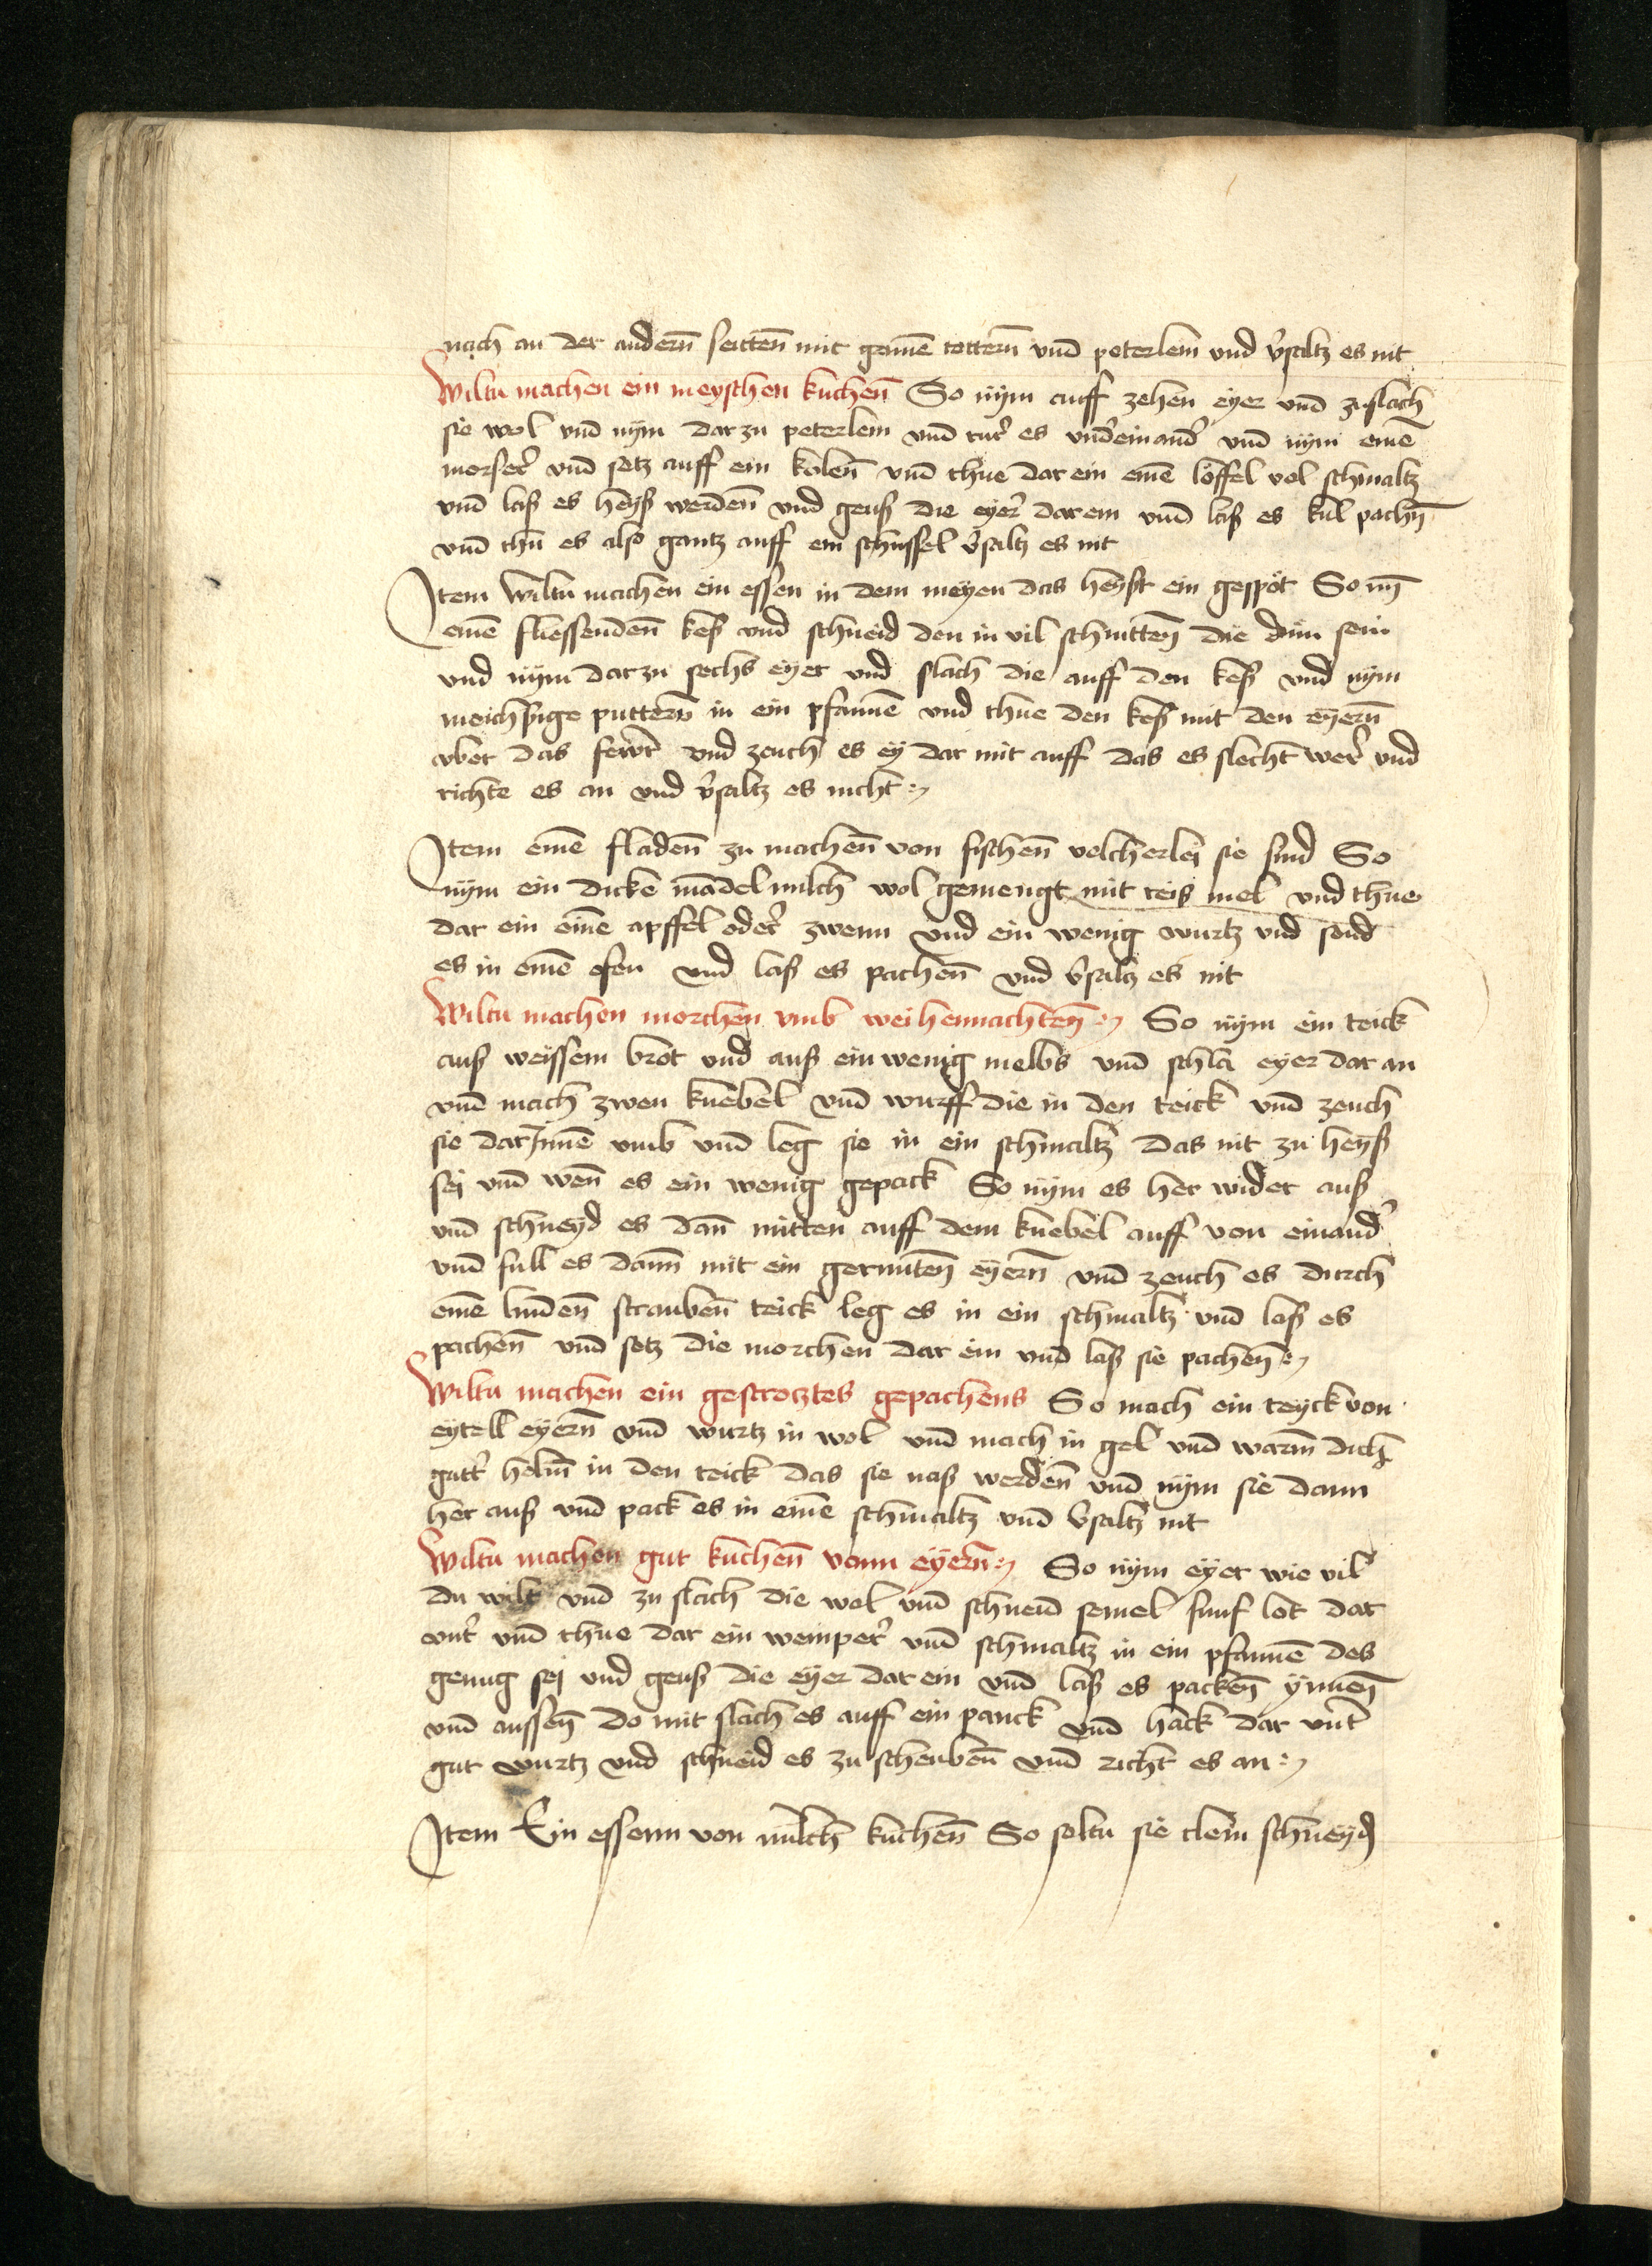 nach an der andern̄ seitten̄ mit gemē tottern̄ vnd peterlein vnd v̓saltz es nit
Wiltu machen ein meyschen kuchen̄ So nym auff zehen eyer vnd zuslach
sie wol vnd nym dar zu peterlein vnd rur̓ es vnd̓einand̓ vnd nym einē
morser̓ vnd setz auff ein kolen̄ vnd thue dar ein einē löffel vol schmaltz
vnd laß es heyß werden̄ vnd geuß die eyer̓ darein vnd laß es kul pachn̄
vnd thu es also gantz auff ein schussel v̓saltz es nit
Item wiltu machen ein essen in dem meyen das heyst ein gespöt So nȳ
einē fliessenden̄ keß vnd schneid den in vil schnitten̄ die dün sein
vnd nym dar zu sechs eyer vnd slach die auff den keß vnd nym
meichsige puttern̄ in ein pfannē vnd thue den keß mit den eyern̄
vber das fewr̓ vnd zeuch es ey dar mit auff das es slecht wer̓ vnd
richte es an vnd v̓saltz es nicht
Item einē fladen̄ zu machen̄ von fischen̄ welcherlei sie sind So
nym ein dicke mādelmilch wol gemengt mit reis mel vnd thue
dar ein einē apffel oder̓ zwenn vnd ein wenig wurtz vnd send
es in einē ofen vnd laß es pachen̄ vnd v̓saltz es nit
Wiltu machen morchen vmb weihennachten̄ So nym ein teick
auß weissem brot vnd auß ein wenig melbs vnd schla eyer dar an
vnd mach zwen knebel vnd wurff die in den teick vnd zeuch
sie darInnē vmb vnd leg sie in ein schmaltz das nit zu heyß
sei vnd wen̄ es ein wenig gepack So nym es her wider auß
vnd schneyd es dan̄ mitten auff dem knebel auff von einand̓
vnd full es dann̄ mit ein gerurten̄ eyern̄ vnd zeuch es durch
einē linden̄ strauben̄ teick leg es in ein schmaltz vnd laß es
pachen̄ vnd setz die morchen dar ein vnd laß sie pachen̄
Wiltu machen ein gestrotztes gepachens So mach ein teyck von
eytell eyern̄ vnd wurtz in wol vnd mach in gel vnd warm dich
gutt̓ helm̄ in den teick das sie naß werden̄ vnd nym sie dann
her auß vnd pack es in einē schmaltz vnd v̓saltz nit
Wiltu machen gut kuchen̄ vonn eyern̄ So nym eyer wie vil
du wilt vnd zu slach die wol vnd schneid semel funf lot dar
vnt̓ vnd thue dar ein weinper̓ vnd schmaltz in ein pfannē des
genug sei vnd geuß die eyer dar ein vnd laß es packen̄ ynnen̄
vnd aussen̄ do mit slach es auff ein panck vnd hack dar vnt̓
gut wurtz vnd schneid es zu scheuben̄ vnd richt es an
Item Ein essenn von milch kuchen̄ So soltu sie clein schneyd